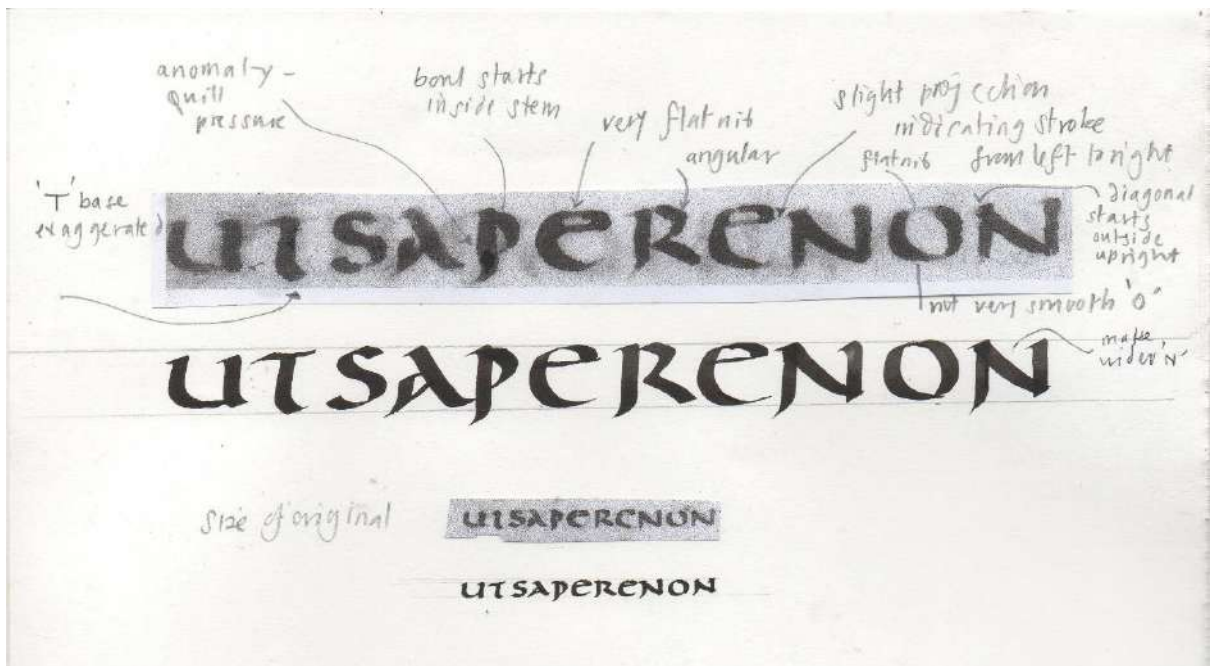 anomaly -
quill
pressure
bowl starts
inside stem
very flat nib
angular
slight projection
indicating stroke
from left to right
flat nib
'T' base
exaggerated
diagonal
starts
outside
upright
UTSAPERENON
not very smooth 'O'
make
wider 'N'
UTSAPERENON
size of original
UTSAPERENON
UTSAPERENON